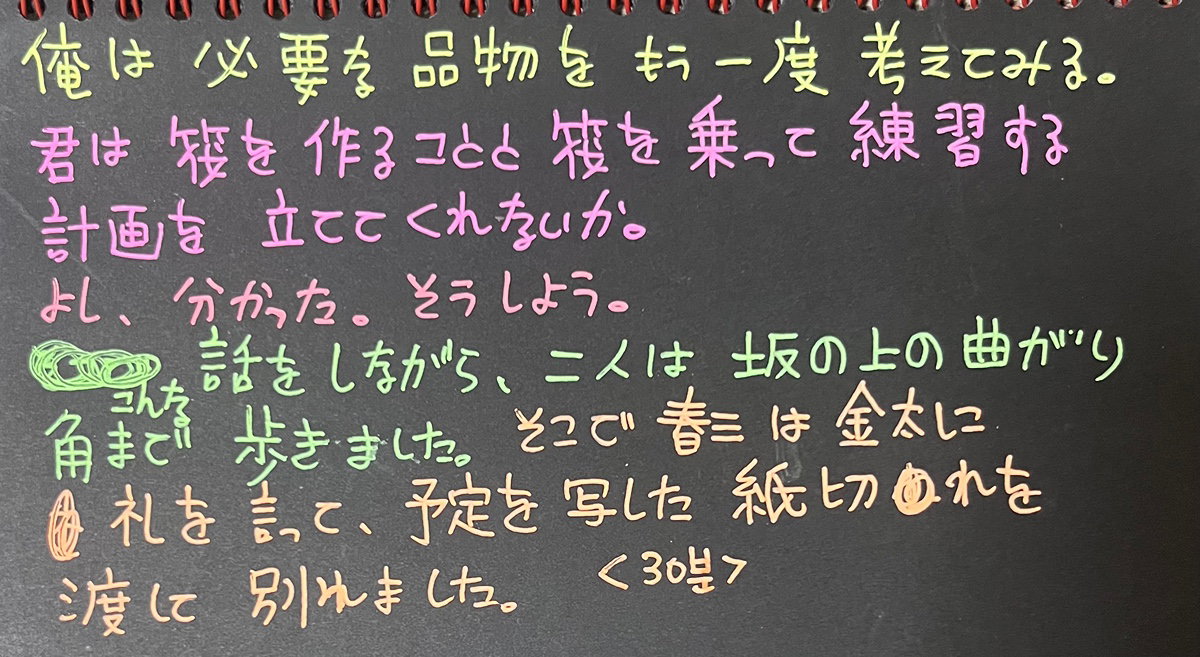 俺は 必要な 品物を もう一度 考えてみる。
君は 筏を 作るコとと 筏を 乗って 練習する
計画を 立ててくれないか。
よし、分かった。そうしよう。
話をしながら、二人は 坂の上の曲がり
こんな
角まで 歩きました。そこで 春三は 金太に
礼を 言って、予定を 写した 紙切れを
渡して 別れました。 <30분>